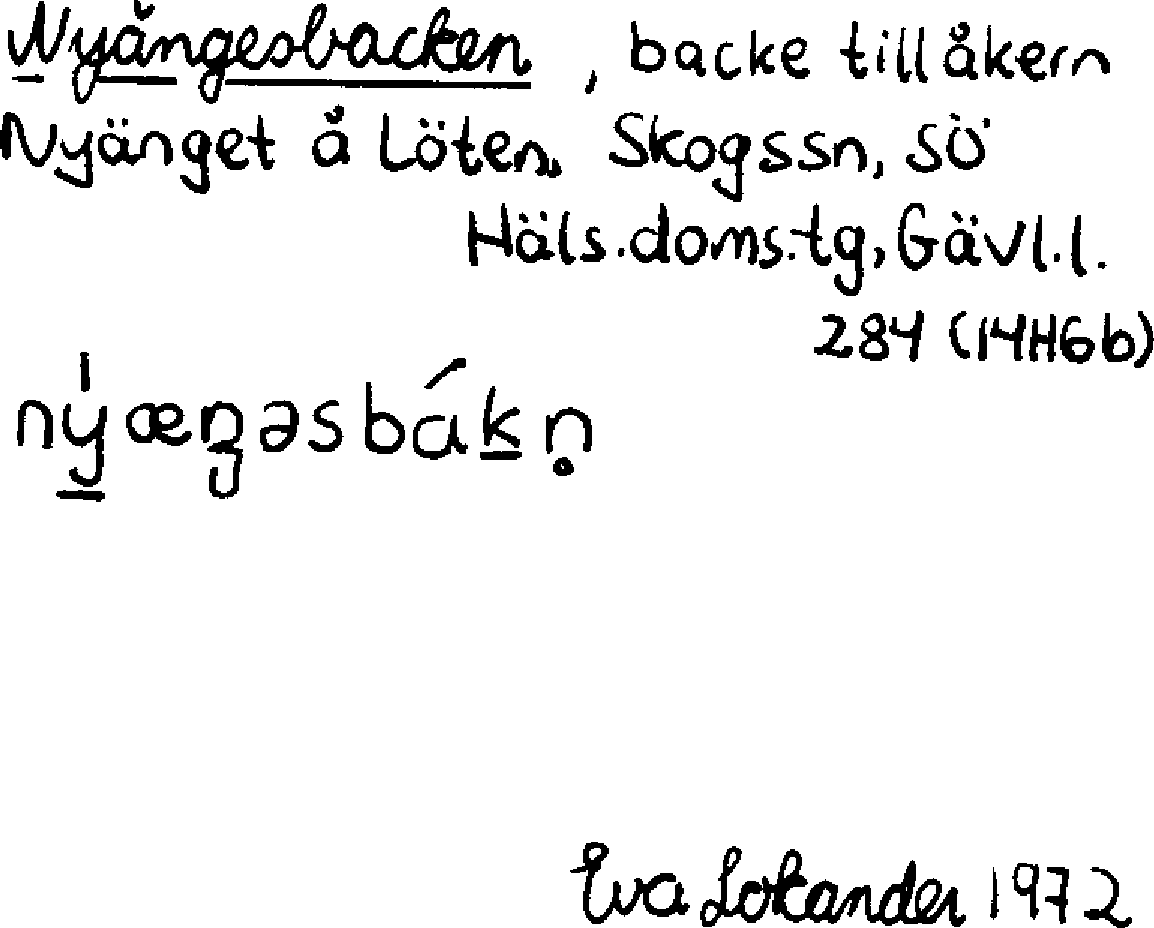 Nyängesbacken, backe till åkern
Nyänget å Löten, Skogssn, Sö
Häls.doms.tg, Gävl.l.
284 (14H6b)
nýæŋəsbákn̥
Eva Lokander 1972